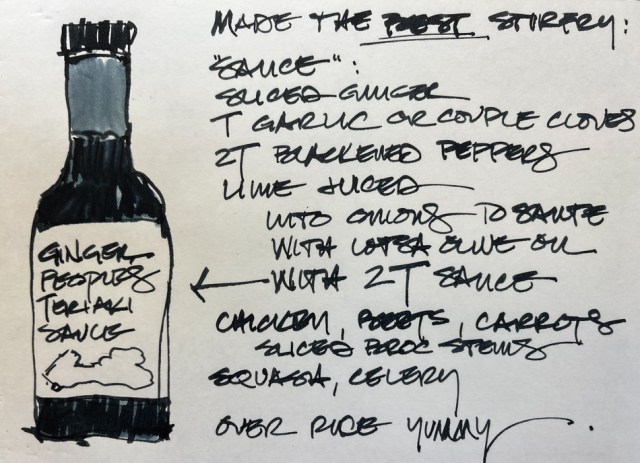 MADE THE BEST STIRFRY:
"SAUCE":
SLICED GINGER
T GARLIC OR COUPLE CLOVES
2T BLACKENED PEPPERS
LIME JUICED
INTO ONIONS TO SAUTE
WITH LOTSA OLIVE OIL
WITH 2T SAUCE
CHICKEN, BEETS, CARROTS
SLICED BROC STEMS
SQUASH, CELERY
OVER RICE YUMMY.
GINGER
PEOPLES
TERIAKI
SAUCE